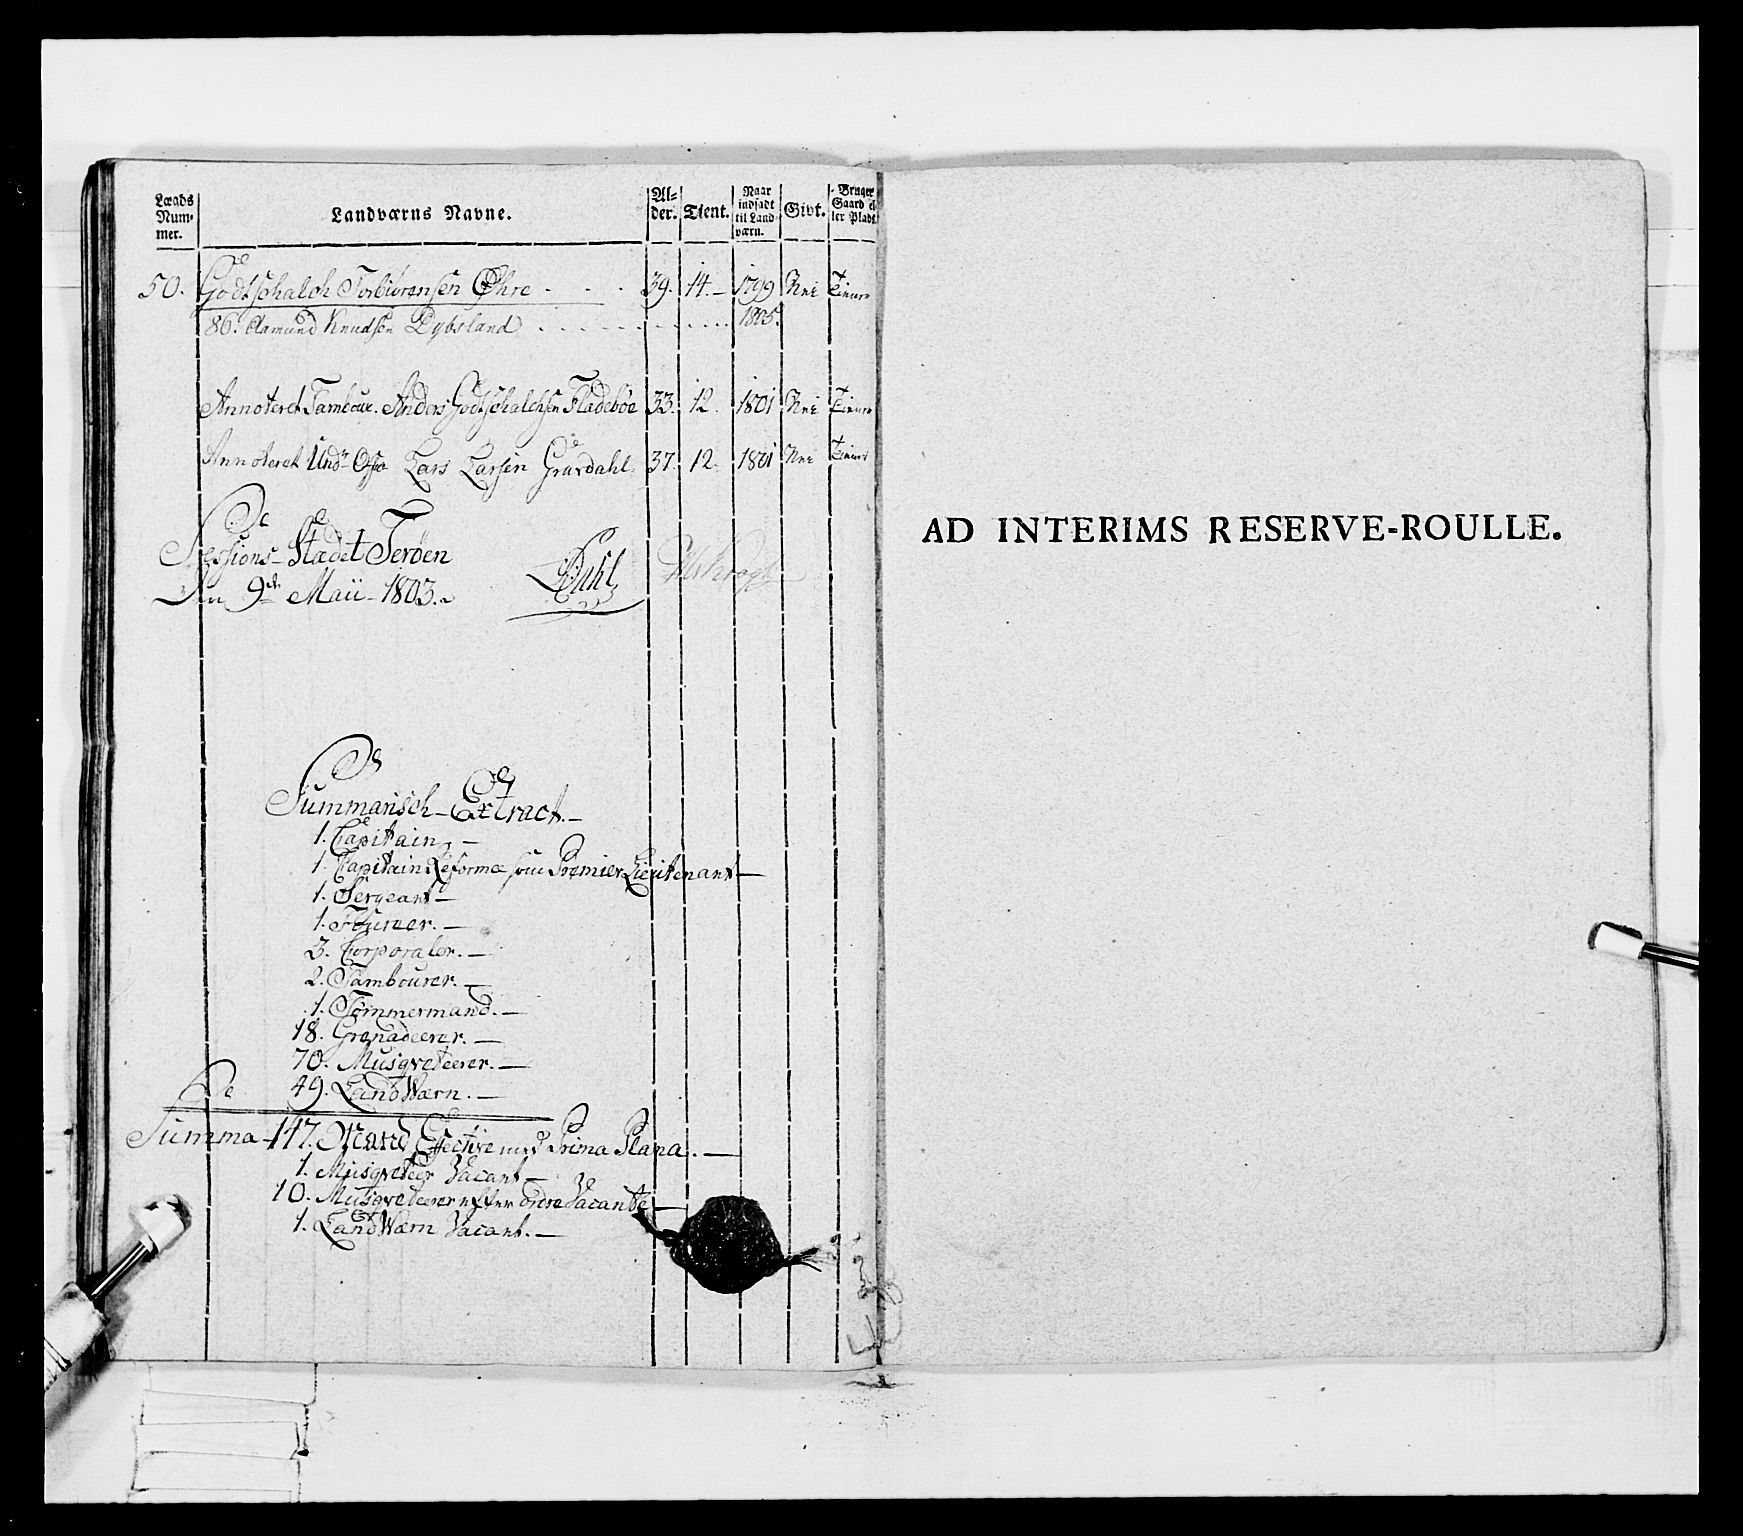 Lægds Num- mer. Landværns Navne. Al- der. Tient. Naar indsadt til Land- værn. Givt. Bruger Gaard el- ler Plads
50. Godtschalch Torbiörensen Øhre 39. 14. 1799 Nei Tiener
86. Aamund Knudsen Dybsland 1805.
Annoteret Tambour. Anders Godtschalchsen Fladebøe 33. 12. 1801 Nei Tiener
Annoteret Undr Offr Lars Larsen Grøvdahl. 37. 12. 1801 Nei Tiener
Sessions-Stædet Terøen
den 9de Maii 1803.
Dahl
Summarisch-Extract.
1. Capitain,
1. Capitain Reforme som Premier Lieutenant
1. Sergeant
1. Fourer.
3. Corporaler.
2. Tambourer.
1. Tømmermand.
18. Grenadeerer.
70. Musqveteerer.
49. LandWærn.
Summa 147. Mand Effective med Prima Plana.
1. Musqveteer Vacant
10. Musqveteerer efter ordre Vacante
1. LandWærn Vacant.
AD INTERIMS RESERVE-ROULLE.